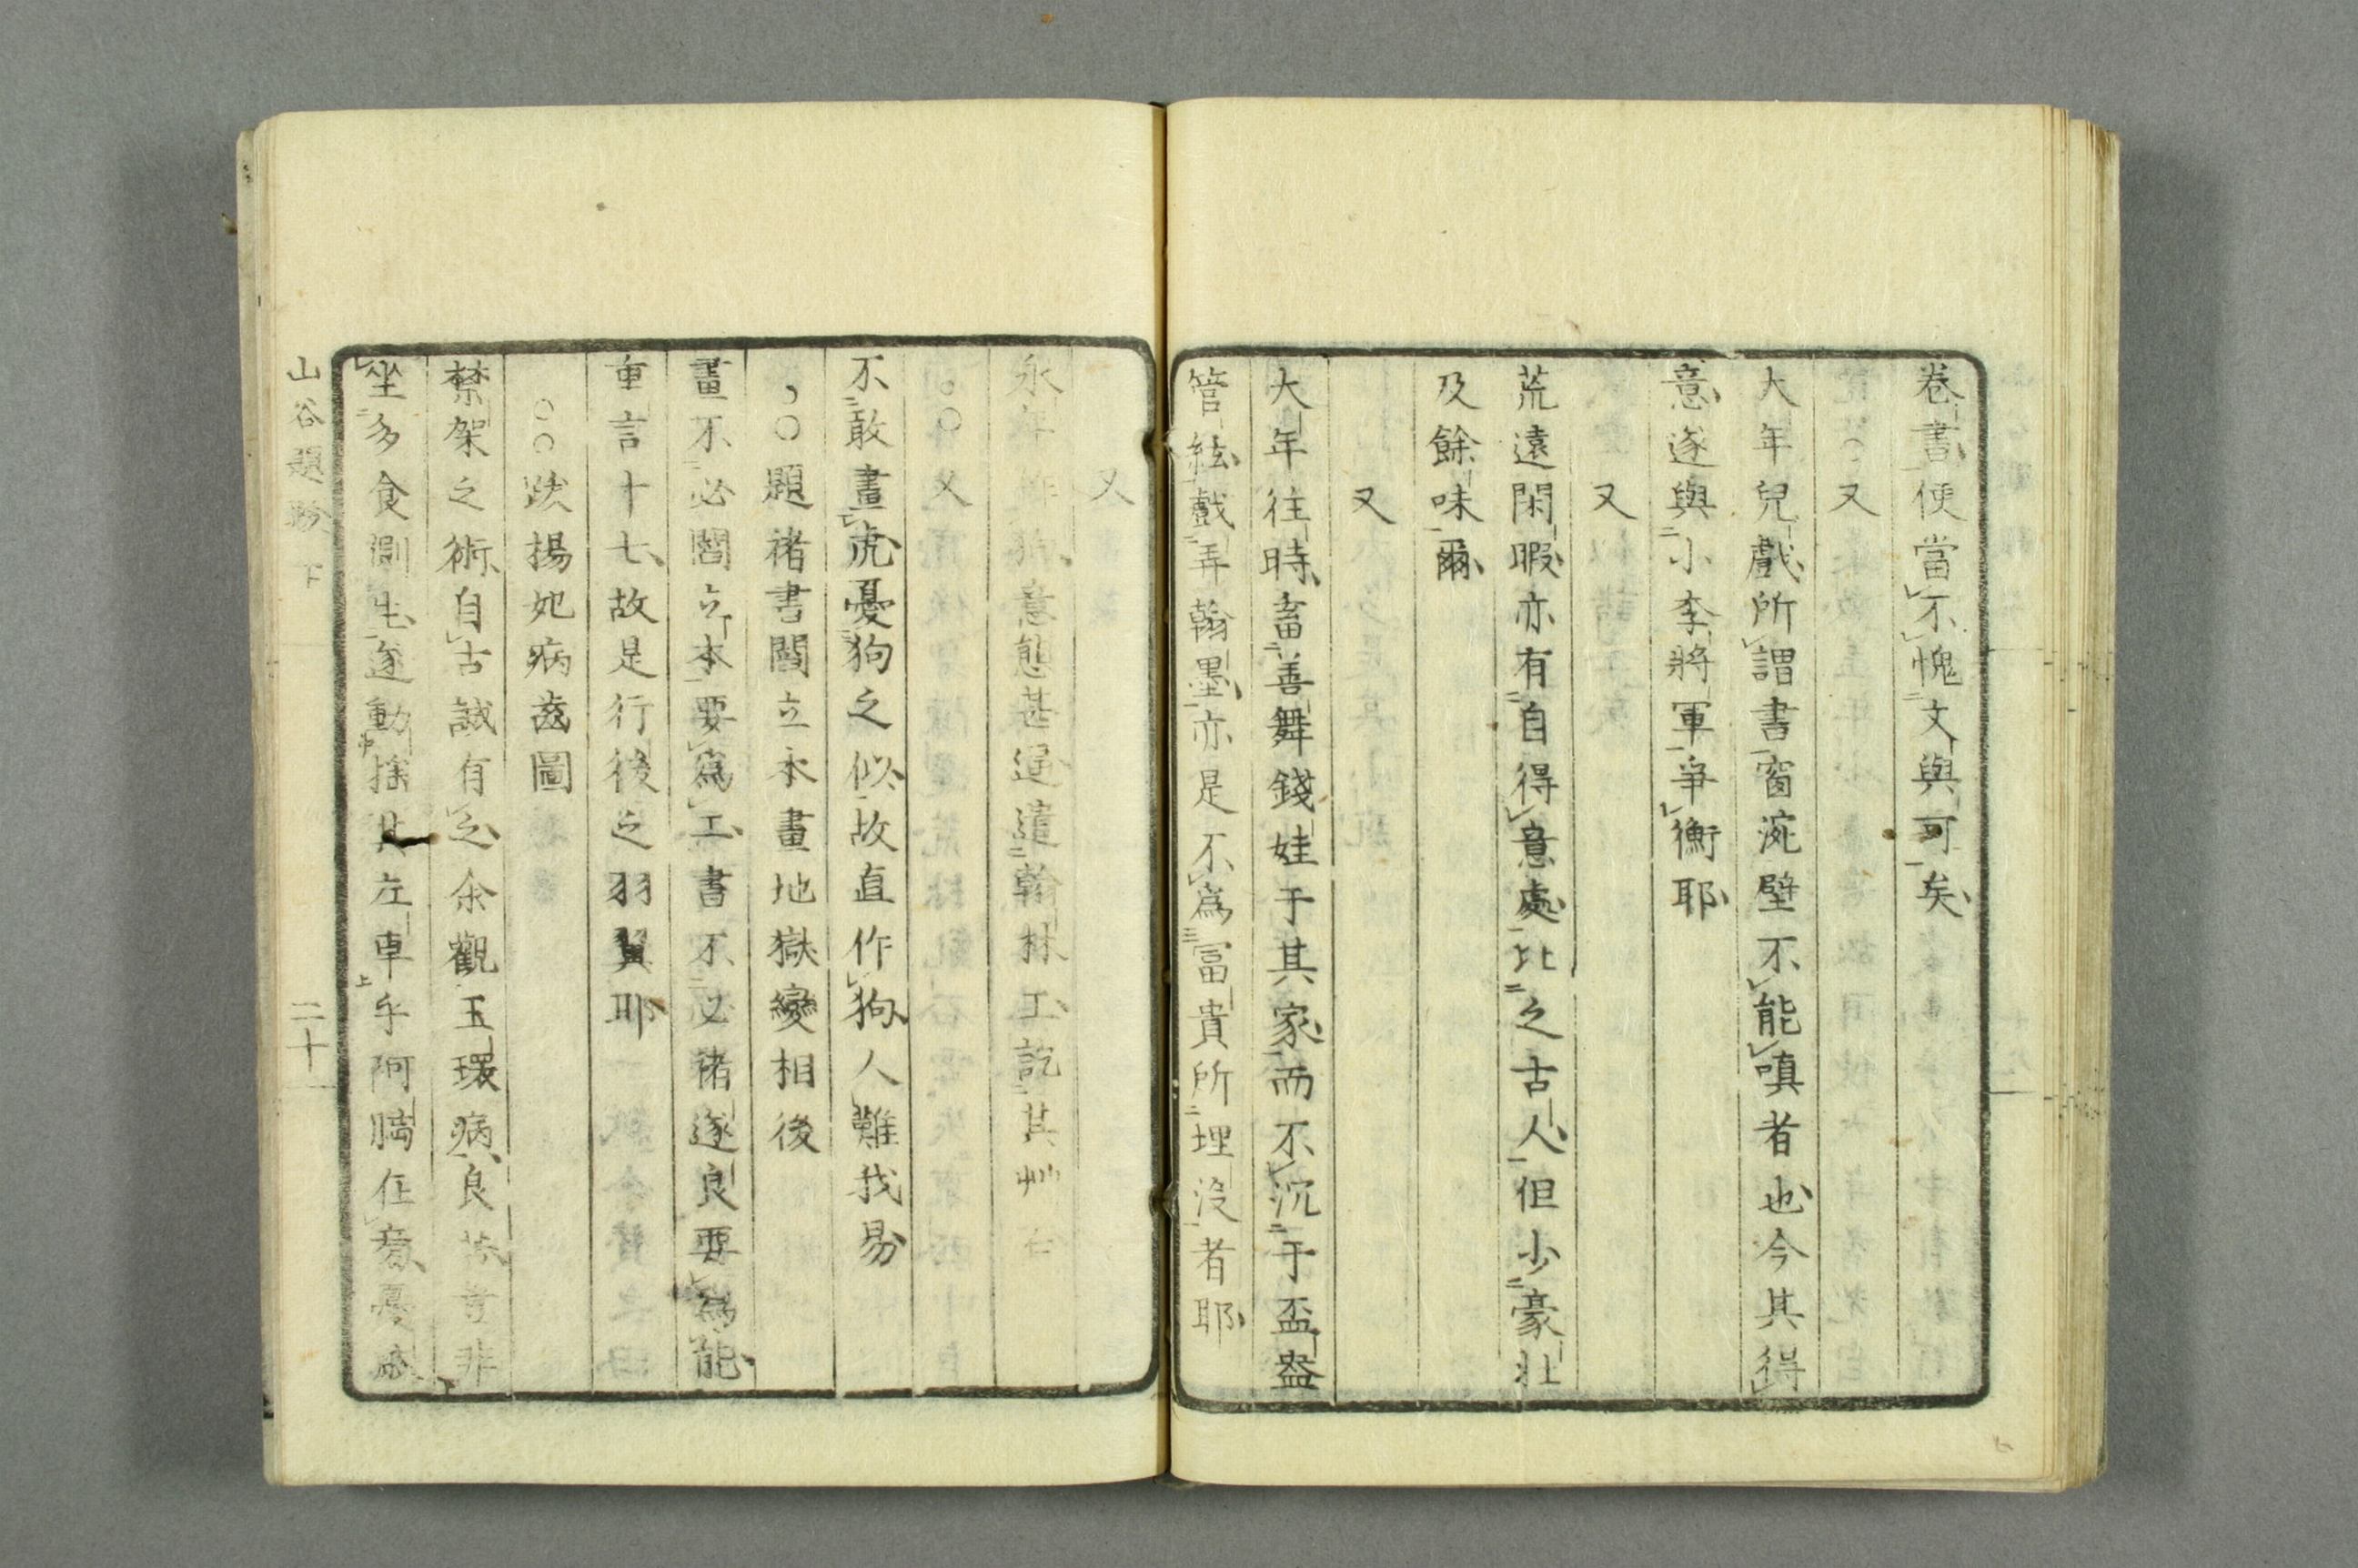 卷書便當不愧文與可矣
○又
大年兒戲所謂書窗涴壁不能嗔者也今其得
意遂與小李將軍爭衡耶
又
荒遠閑暇亦有自得意處比之古人但少豪壯
及餘味爾
又
大年往時畜善舞錢娃于其家而不沉于盃盎
管絃戲弄翰墨亦是不爲富貴所埋沒者耶
又
永年 狗意態甚逼遣翰林工訖其艸石
○○又
不敢畫虎憂狗之似故直作狗人難我易
○題褚書閻立本畫地獄變相後
畫不必閻立本要爲工書不必褚遂良要爲能
重言十七故是行後之羽翼耶
○○跋楊妃病齒圖
禁架之術自古誠有之余觀玉環病良 非
坐多食側生遂動搖其左車乎阿瞞在旁憂
山谷題跋 下
二十